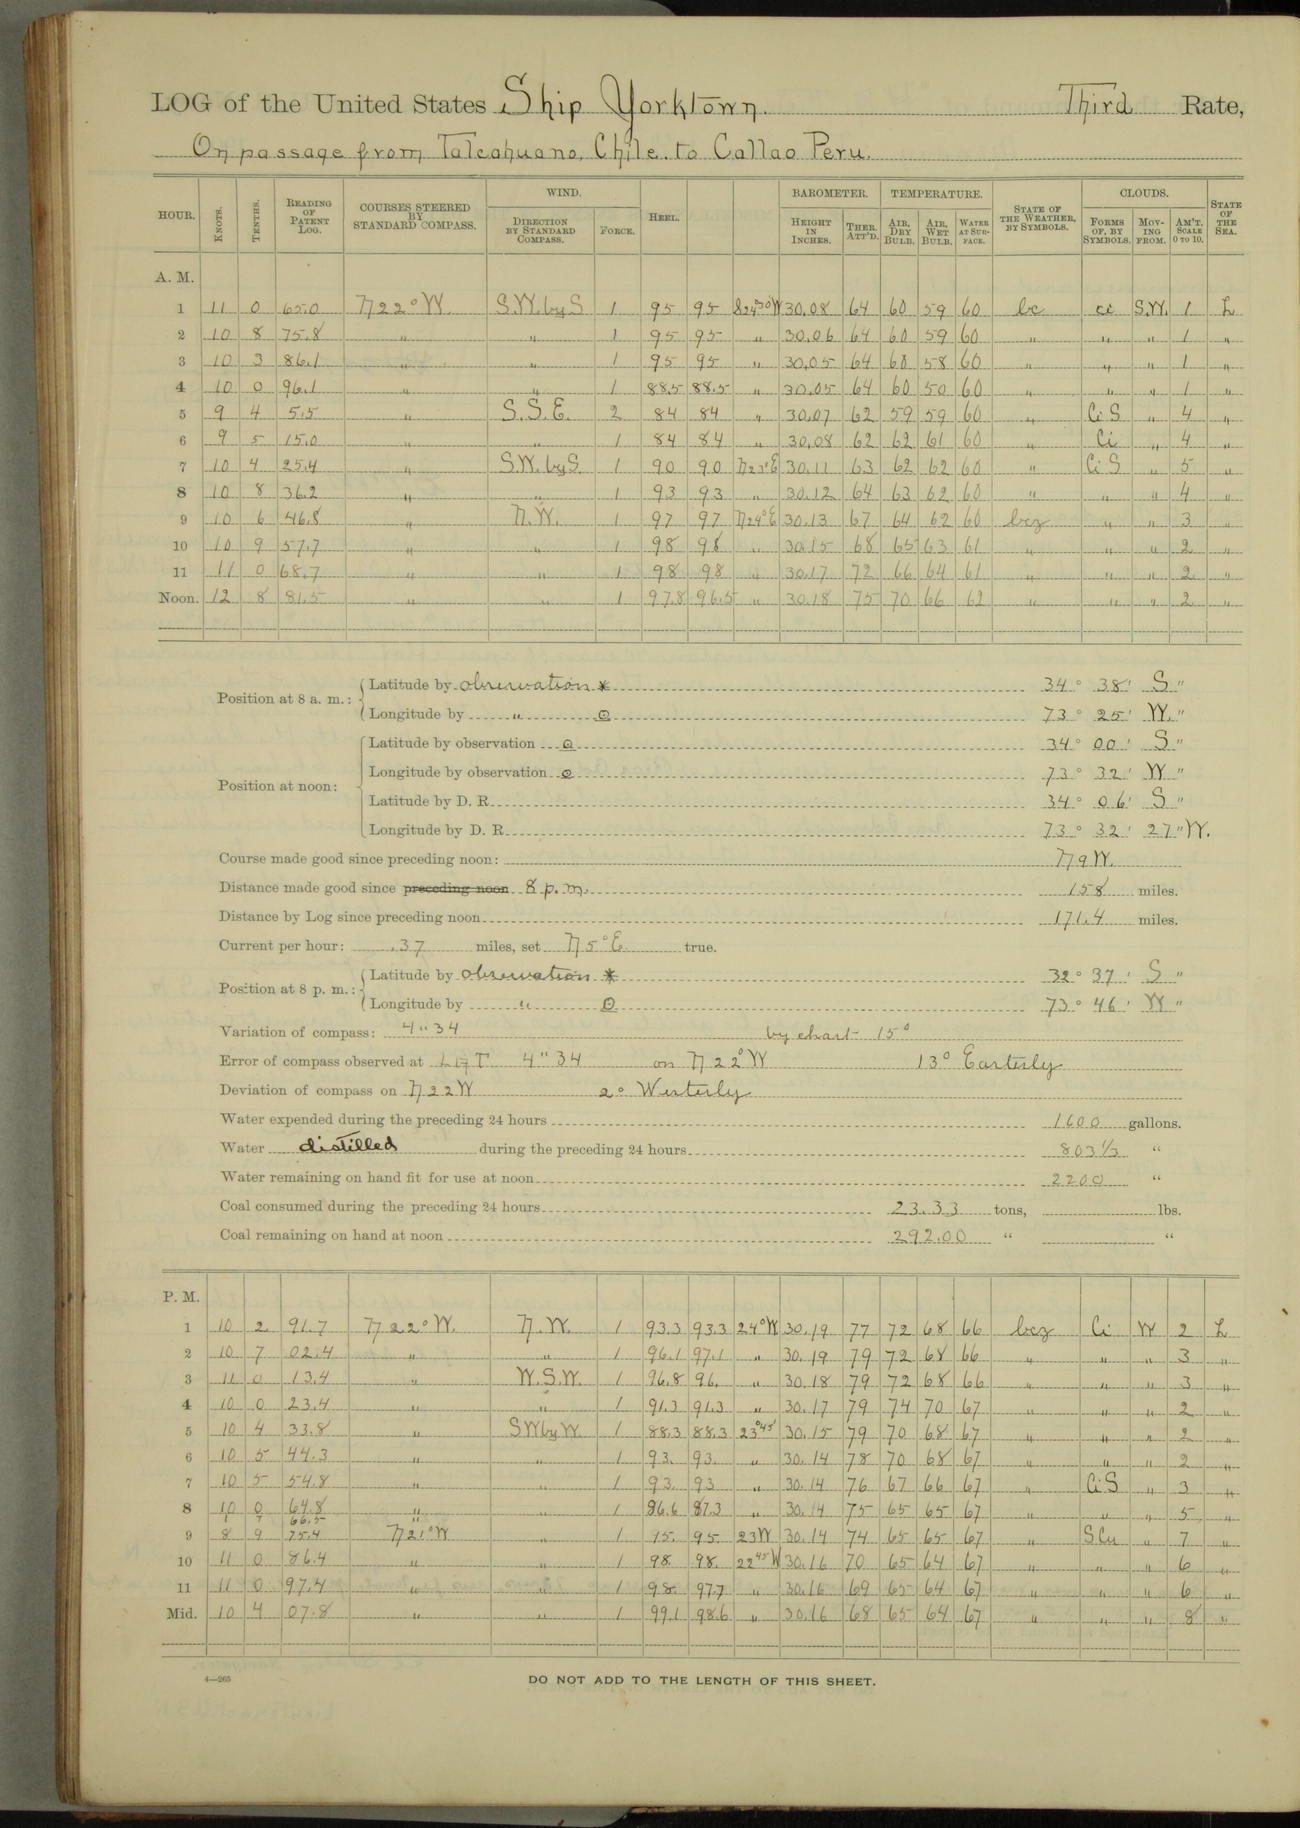 LOG of the United States Ship Yorktown. Third Rate,
On passage from Talcahuano, Chile. to Callao Peru.
HOUR. KNOTS. TENTHS. READING OF PATENT LOG. COURSES STEERED BY STANDARD COMPASS. WIND. DIRECTION BY STANDARD COMPASS. FORCE. HEEL. BAROMETER. HEIGHT IN INCHES. THER. ATT'D. TEMPERATURE. AIR, DRY BULB. AIR, WET BULB. WATER AT SURFACE. STATE OF THE WEATHER, BY SYMBOLS. CLOUDS. FORMS OF, BY SYMBOLS. MOVING FROM. AM'T. SCALE 0 TO 10. STATE OF THE SEA.
A. M.
1 11 0 65.0 N 22° W. S.W. by S 1 95 95 30.08 64 60 59 60 bc ci S.W. 1 L
2 10 8 75.8 " " 1 95 95 " 30.06 64 60 59 60 " " " 1 "
3 10 3 86.1 " " 1 95 95 " 30.05 64 60 58 60 " " " 1 "
4 10 0 96.1 " " 1 88.5 88.5 " 30.05 64 60 50 60 " " " 1 "
5 9 4 5.5 " S.S.E. 2 84 84 " 30.07 62 59 59 60 " Ci S " 4 "
6 9 5 15.0 " " 1 84 84 " 30.08 62 62 61 60 " Ci " 4 "
7 10 4 25.4 " S.W. by S. 1 90 90 N23°E 30.11 63 62 62 60 " Ci S " 5 "
8 10 8 36.2 " " 1 93 93 " 30.12 64 63 62 60 " " " 4 "
9 10 6 46.8 " N.W. 1 97 97 N24°E 30.13 67 64 62 60 bcz " " 3 "
10 10 9 57.7 " " 1 98 98 " 30.15 68 65 63 61 " " " 2 "
11 11 0 68.7 " " 1 98 98 " 30.17 72 66 64 61 " " " 2 "
Noon. 12 8 81.5 " " 1 97.8 96.5 " 30.18 75 70 66 62 " " " 2 "
Position at 8 a. m.: Latitude by observation * 34° 38' S "
Longitude by " ⊙ 73° 25' W. "
Position at noon: Latitude by observation ⊙ 34° 00' S "
Longitude by observation ⊙ 73° 32' W "
Latitude by D. R. 34° 06' S "
Longitude by D. R. 73° 32' 27" W.
Course made good since preceding noon: N 9 W.
Distance made good since preceding noon 8 p.m. 158 miles.
Distance by Log since preceding noon 171.4 miles.
Current per hour: .37 miles, set N 5° E. true.
Position at 8 p. m.: Latitude by observation * 32° 37' S "
Longitude by " ⊙ 73° 46' W "
Variation of compass: 4" 34 by chart 15°
Error of compass observed at 4" 34 on N 22° W 13° Easterly
Deviation of compass on N 22 W 2° Westerly
Water expended during the preceding 24 hours 1600 gallons.
Water distilled during the preceding 24 hours 803 1/3 "
Water remaining on hand fit for use at noon 2200 "
Coal consumed during the preceding 24 hours 23.33 tons, lbs.
Coal remaining on hand at noon 292.00 " "
P. M.
1 10 2 91.7 N 22° W. N.W. 1 93.3 93.3 24°W 30.19 77 72 68 66 bcz Ci W 2 L
2 10 7 02.4 " " 1 96.1 97.1 " 30.19 79 72 68 66 " " " 3 "
3 11 0 13.4 " W.S.W. 1 96.8 96. " 30.18 79 72 68 66 " " " 3 "
4 10 0 23.4 " " 1 91.3 91.3 " 30.17 79 74 70 67 " " " 2 "
5 10 4 33.8 " SW by W. 1 88.3 88.3 23°45' 30.15 79 70 68 67 " " " 2 "
6 10 5 44.3 " " 1 93. 93. " 30.14 78 70 68 67 " " " 2 "
7 10 5 54.8 " " 1 93. 93 " 30.14 76 67 66 67 " Ci S " 3 "
8 10 0 64.8 " " 1 86.6 87.3 " 30.14 75 65 65 67 " " " 5 "
1 7 66.5 "
9 8 9 75.4 N 21° W " 1 95. 95 23W 30.14 74 65 65 67 " S Cu " 7 "
10 11 0 86.4 " " 1 98. 98. 22 45' W 30.16 70 65 64 67 " " " 6 "
11 11 0 97.4 " " 1 98. 97.7 " 30.16 69 65 64 67 " " " 6 "
Mid. 10 4 07.8 " " 1 99.1 98.6 " 30.16 68 65 64 67 " " " 8 "
4—265
DO NOT ADD TO THE LENGTH OF THIS SHEET.